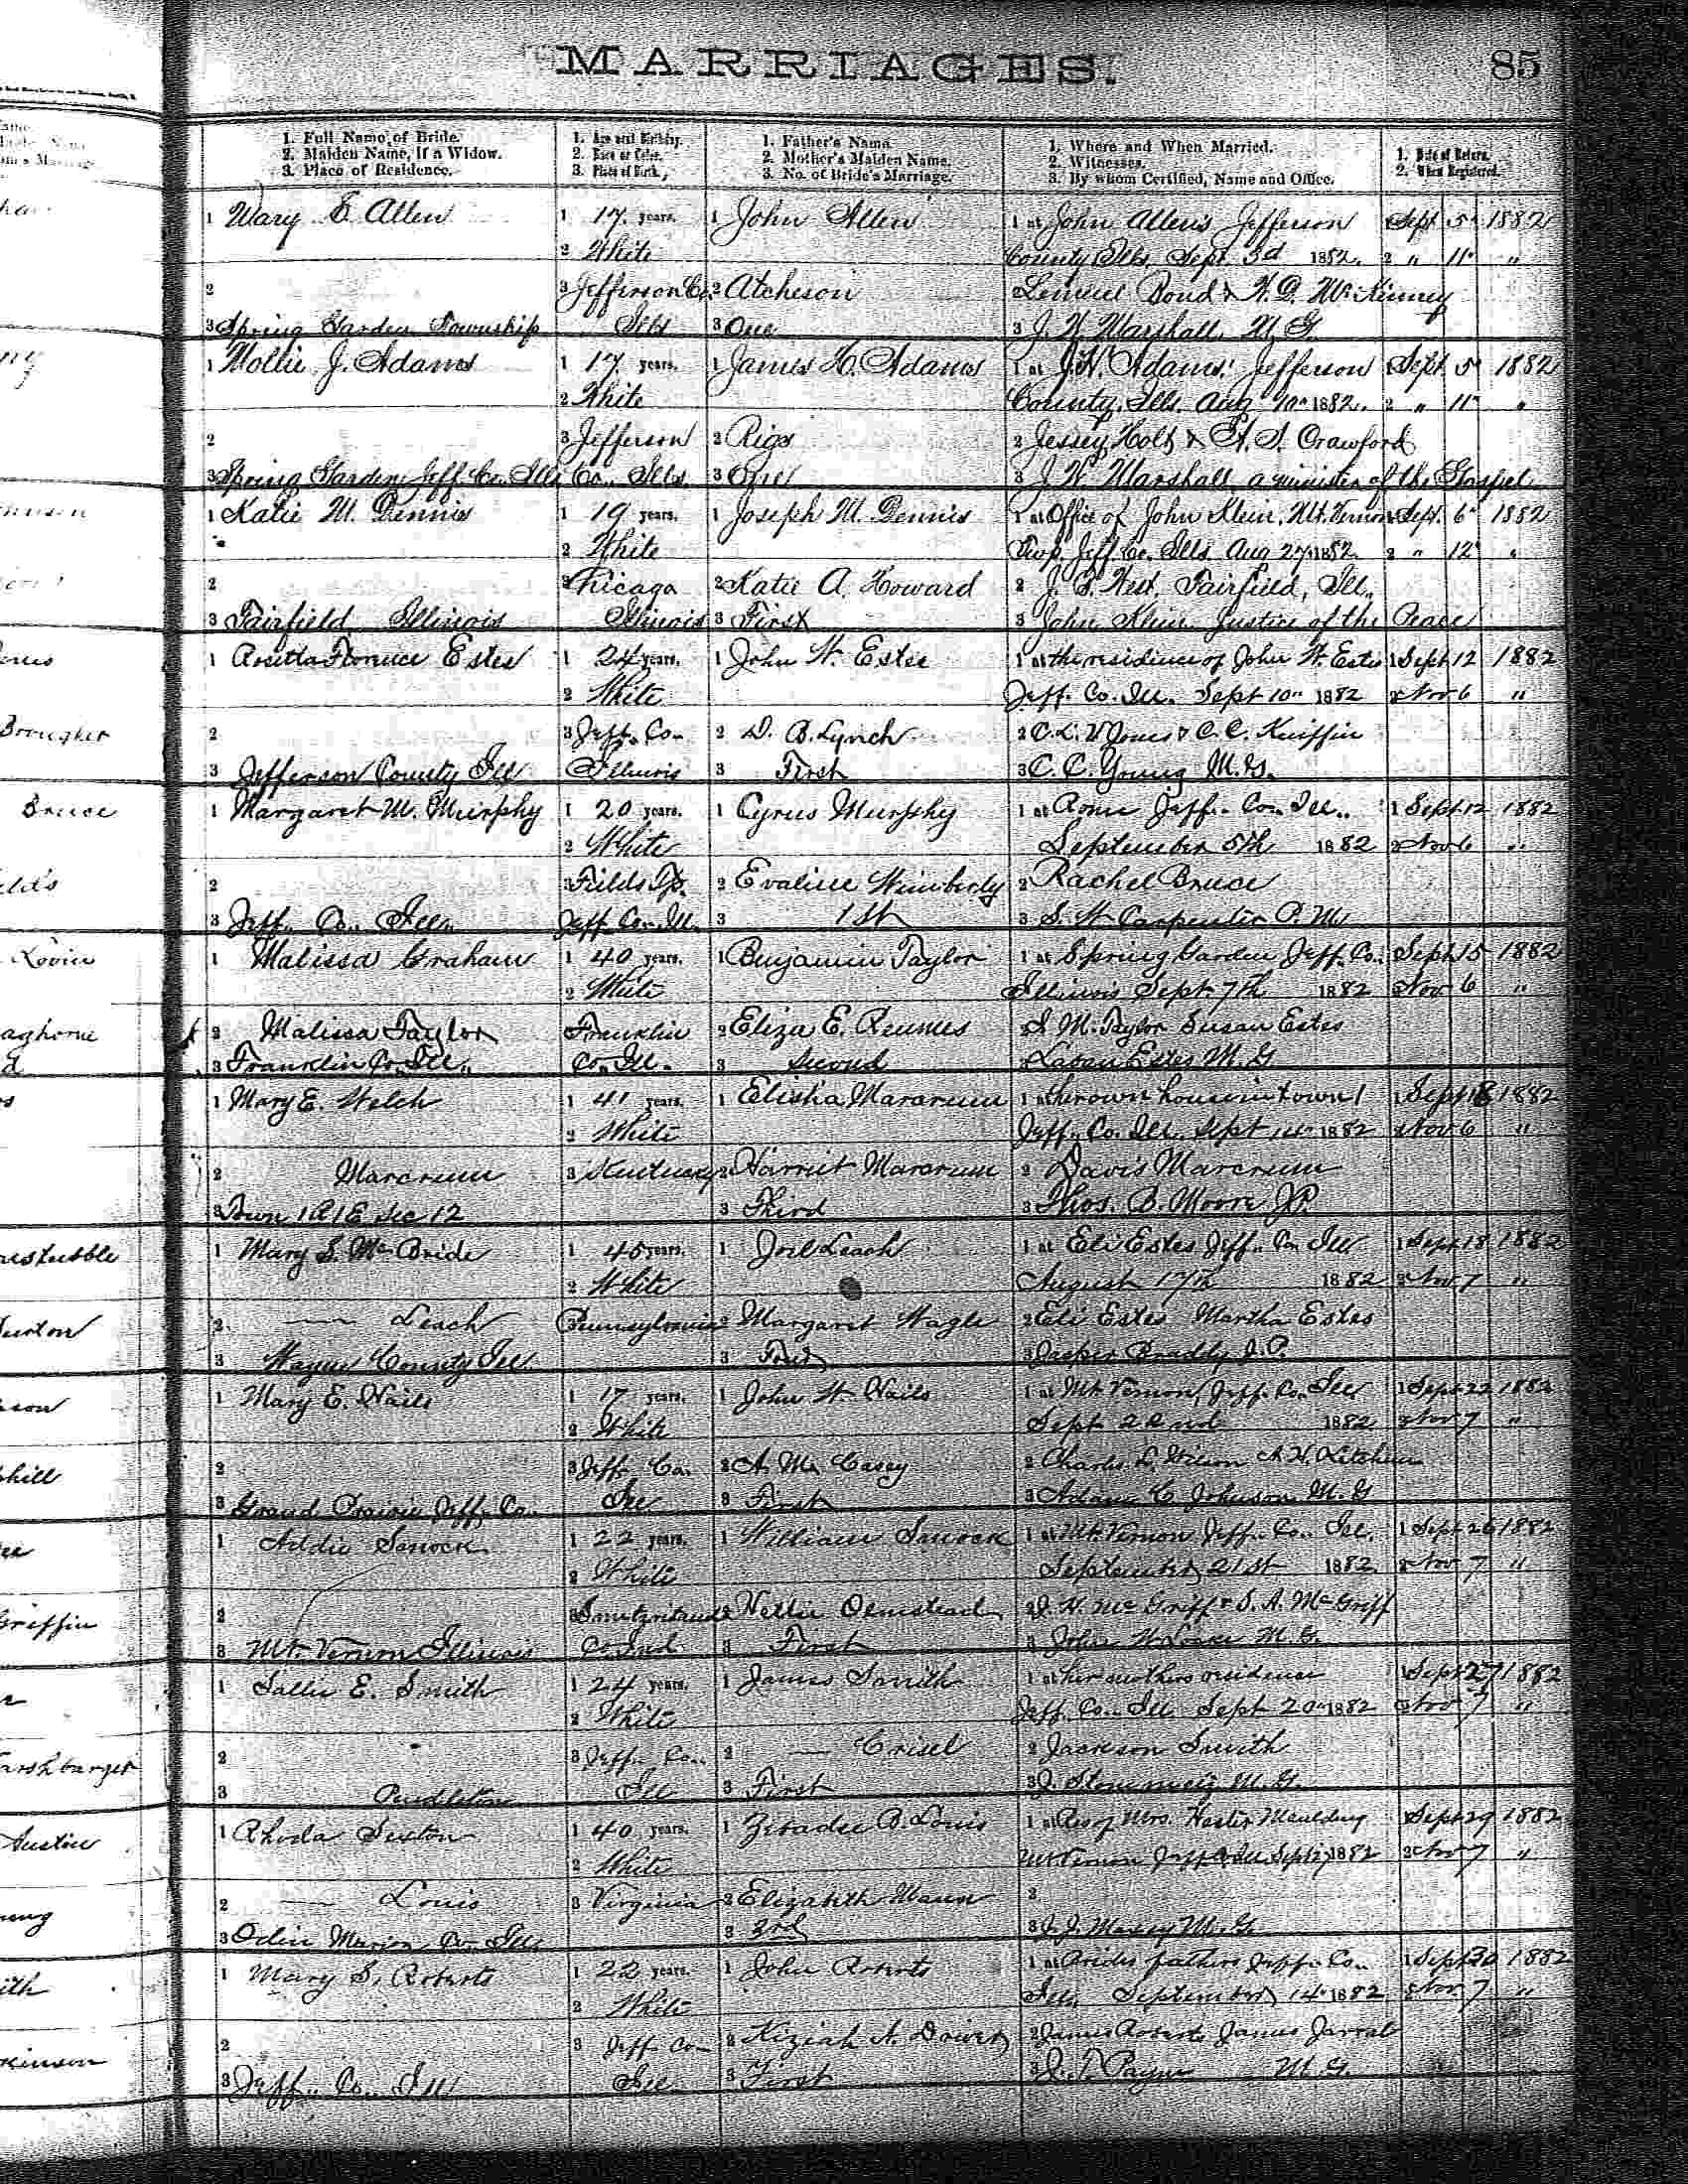 MARRIAGES.
85
1. Full Name of Bride.
2. Maiden Name, If a Widow.
3. Place of Residence.
1. Age next Birthday.
2. Race or Color.
3. Place of Birth.
1. Father's Name.
2. Mother's Maiden Name.
3. No. of Bride's Marriage.
1. Where and When Married.
2. Witnesses.
3. By whom Certified, Name and Office.
1. Date of Return.
2. When Registered.
1 Mary E. Allen 1 17 years. 1 John Allen 1 at John Allen's Jefferson 1 Sept 5" 1882
2 White County Ills. Sept 3d 1882. 2 " 11" "
2 3 Jefferson Co. 2 Atcheson 2 Lemuel Bond & W. D. McKinney
3 Spring Garden Township Ills 3 One 3 J. W. Marshall, M. G.
1 Mollie J. Adams 1 17 years. 1 James H. Adams 1 at J. H. Adams' Jefferson 1 Sept 5" 1882
2 White County, Ills. Aug 10" 1882. 2 " 11" "
2 3 Jefferson 2 Rigs 2 Jessey Holt & Crawford
3 Spring Garden Jeff Co. Ills Co., Ills. 3 One 3 J. W. Marshall a minister of the Gospel
1 Katie M. Dennis 1 19 years. 1 Joseph M. Dennis 1 at Office of John Klein, Mt. Vernon 1 Sept. 6" 1882
2 White Twp. Jeff Co. Ills. Aug 27" 1882. 2 " 12" "
2 3 Chicago 2 Katie A. Howard 2 Fairfield, Ill.
3 Fairfield Illinois Illinois 3 First 3 John Klein Justice of the Peace
1 Florence Estes 1 24 years. 1 John W. Estes 1 at the residence of John W. Estes 1 Sept 12 1882
2 White Jeff. Co. Ill. Sept 10" 1882 2 Nov 6 "
2 3 Jeff. Co. 2 D. B. Lynch 2 & C. C.
3 Jefferson County Ill Illinois 3 First 3 C. C. Young M. G.
1 Margaret M. Murphy 1 20 years. 1 Cyrus Murphy 1 at Rome Jeff. Co. Ill. 1 Sept 12 1882
2 White September 5th 1882 2 Nov 6 "
2 3 Fields Tp. 2 Evaline Wimberly 2 Rachel Bruce
3 Jeff. Co. Ill. Jeff Co. Ill. 3 1st 3 S. W. Carpenter P. M.
1 Malissa Graham 1 40 years. 1 Benjamin Taylor 1 at Spring Garden Jeff. Co. 1 Sept 15 1882
2 White Illinois Sept. 7th 1882 2 Nov 6 "
2 Malissa Taylor Franklin 2 Eliza E. 2 Taylor Susan Estes
3 Franklin Co. Ill. Co. Ill. 3 Second 3 Laban Estes M. G.
1 Mary E. Welch 1 41 years. 1 Elisha Marcrum 1 at her own house in town 1 1 Sept 18 1882
2 White Jeff. Co. Ill. Sept 14" 1882 2 Nov 6 "
2 Marcrum 3 Kentucky 2 Harriet Marcrum 2 Davis Marcrum
3 Town 1 R 1 E Sec 12 3 Third 3 Thos. B. Moore J. P.
1 Mary S. McBride 1 45 years. 1 Joel Leach 1 at Eli Estes Jeff. Co. Ill 1 Sept 18 1882
2 White August 17th 1882 2 Nov 7 "
2 Leach Pennsylvania 2 Margaret Nagle 2 Eli Estes Martha Estes
3 Wayne County Ill. 3 3 Jasper Bradly J. P.
1 Mary E. Nails 1 17 years. 1 John W. Nails 1 at Mt. Vernon Jeff. Co. Ill 1 Sept 22 1882
2 White Sept 22nd 1882 2 Nov 7 "
2 3 Jeff. Co. 2 A. M. Casey 2 Charles
3 Grand Prairie Jeff. Co. Ill 3 First 3 Adam C. Johnson M. G.
1 Addie Sanock 1 22 years. 1 William Sanock 1 at Mt. Vernon Jeff. Co. Ill. 1 Sept 26 1882
2 White September 21st 1882. 2 Nov 7 "
2 3 Switzerland 2 Nellie Olmstead 2 J. H. McGriff & S. A. McGriff
3 Mt. Vernon Illinois Co. Ind. 3 First 3 John M. G.
1 Sallie E. Smith 1 24 years. 1 James Smith 1 at her mothers residence 1 Sept 27 1882
2 White Jeff. Co. Ill Sept 20" 1882 2 Nov 7 "
2 3 Jeff. Co. 2 Crisel 2 Jackson Smith
3 Pendleton Ill 3 First 3 M. G.
1 Rhoda Sexton 1 40 years. 1 Zebadee B. Louis 1 at Res of Mrs. Hester Maulding 1 Sept 29 1882
2 White Mt Vernon Jeff Co Ill Sept 1882 2 Nov 7 "
2 Louis 3 Virginia 2 Elizabeth Mann 2
3 Odin Marion Co. Ill. 3 2nd 3 J. J. Massey M. G.
1 Mary S. Roberts 1 22 years. 1 John Roberts 1 at Brides fathers Jeff. Co. 1 Sept 30 1882
2 White Ill. September 14" 1882 2 Nov. 7 "
2 3 Jeff Co 2 Keziah A. 2 James Roberts James
3 Jeff. Co. Ill Ill. 3 First 3 Payne M. G.